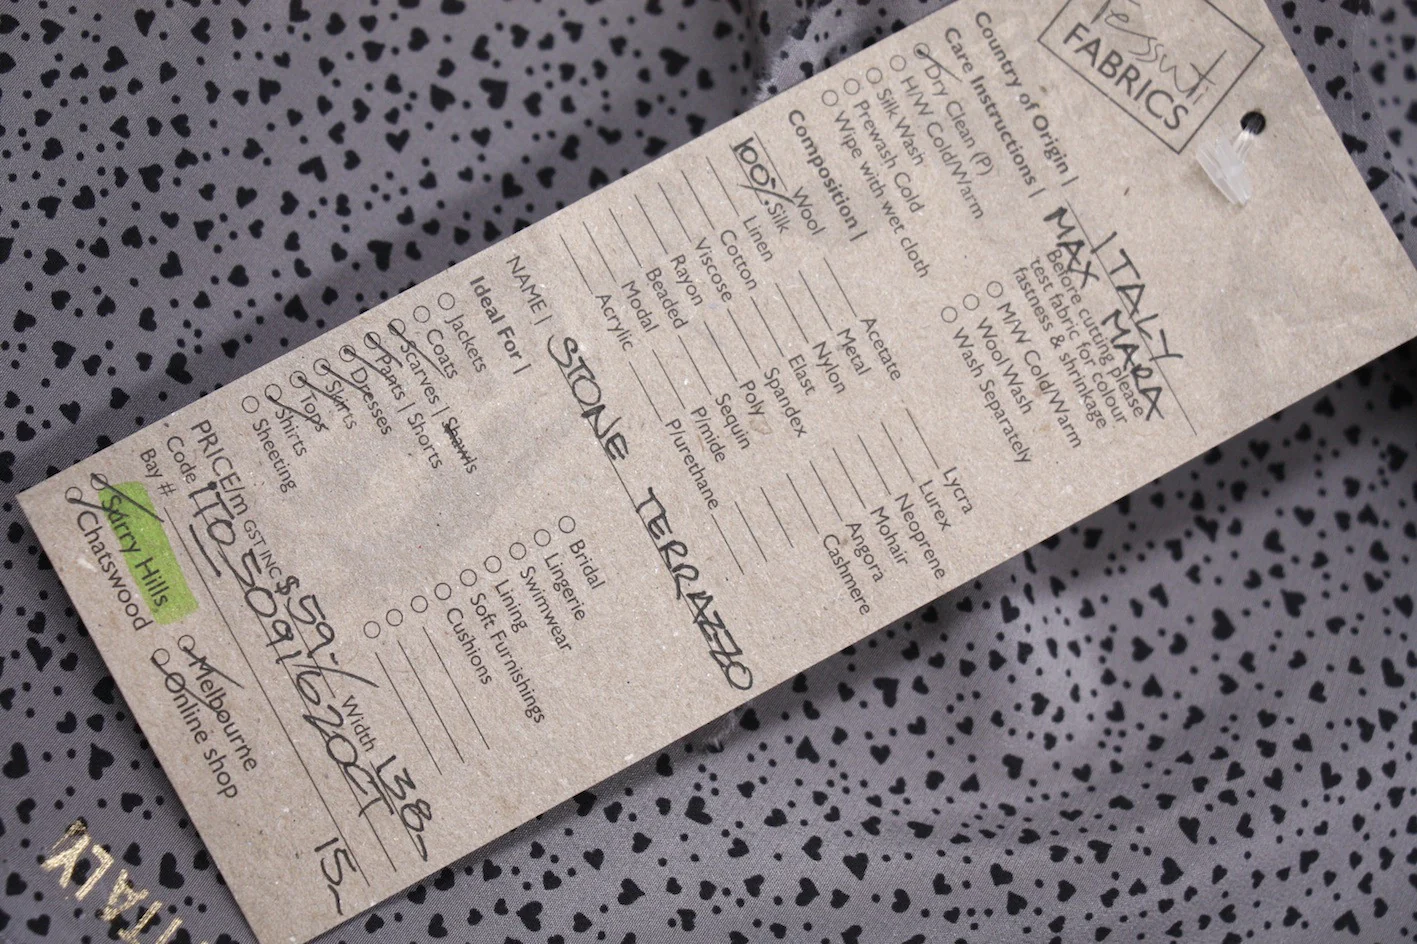 Tessuti
FABRICS
Country of Origin | ITALY
MAX MARA
Care Instructions |
Before cutting please
test fabric for colour
fastness & shrinkage
Dry Clean (P)
H/W Cold/Warm
Silk Wash
Prewash Cold
Wipe with wet cloth
M/W Cold/Warm
Wool Wash
Wash Separately
Composition |
Wool
100% Silk
Linen
Cotton
Viscose
Rayon
Beaded
Modal
Acrylic
Acetate
Metal
Nylon
Elast
Spandex
Poly
Sequin
P/mide
P/urethane
Lycra
Lurex
Neoprene
Mohair
Angora
Cashmere
NAME | STONE TERRAZZO
Ideal For |
Jackets
Coats
Scarves | Shawls
Pants | Shorts
Dresses
Skirts
Tops
Shirts
Sheeting
Bridal
Lingerie
Swimwear
Lining
Soft Furnishings
Cushions
PRICE/m GST INC $59- Width 138
Code ITO
Bay #
15
Surry Hills
Chatswood
Melbourne
Online shop
ITALY